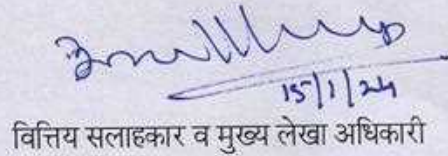 15/1/24
वित्तिय सलाहकार व मुख्य लेखा अधिकारी